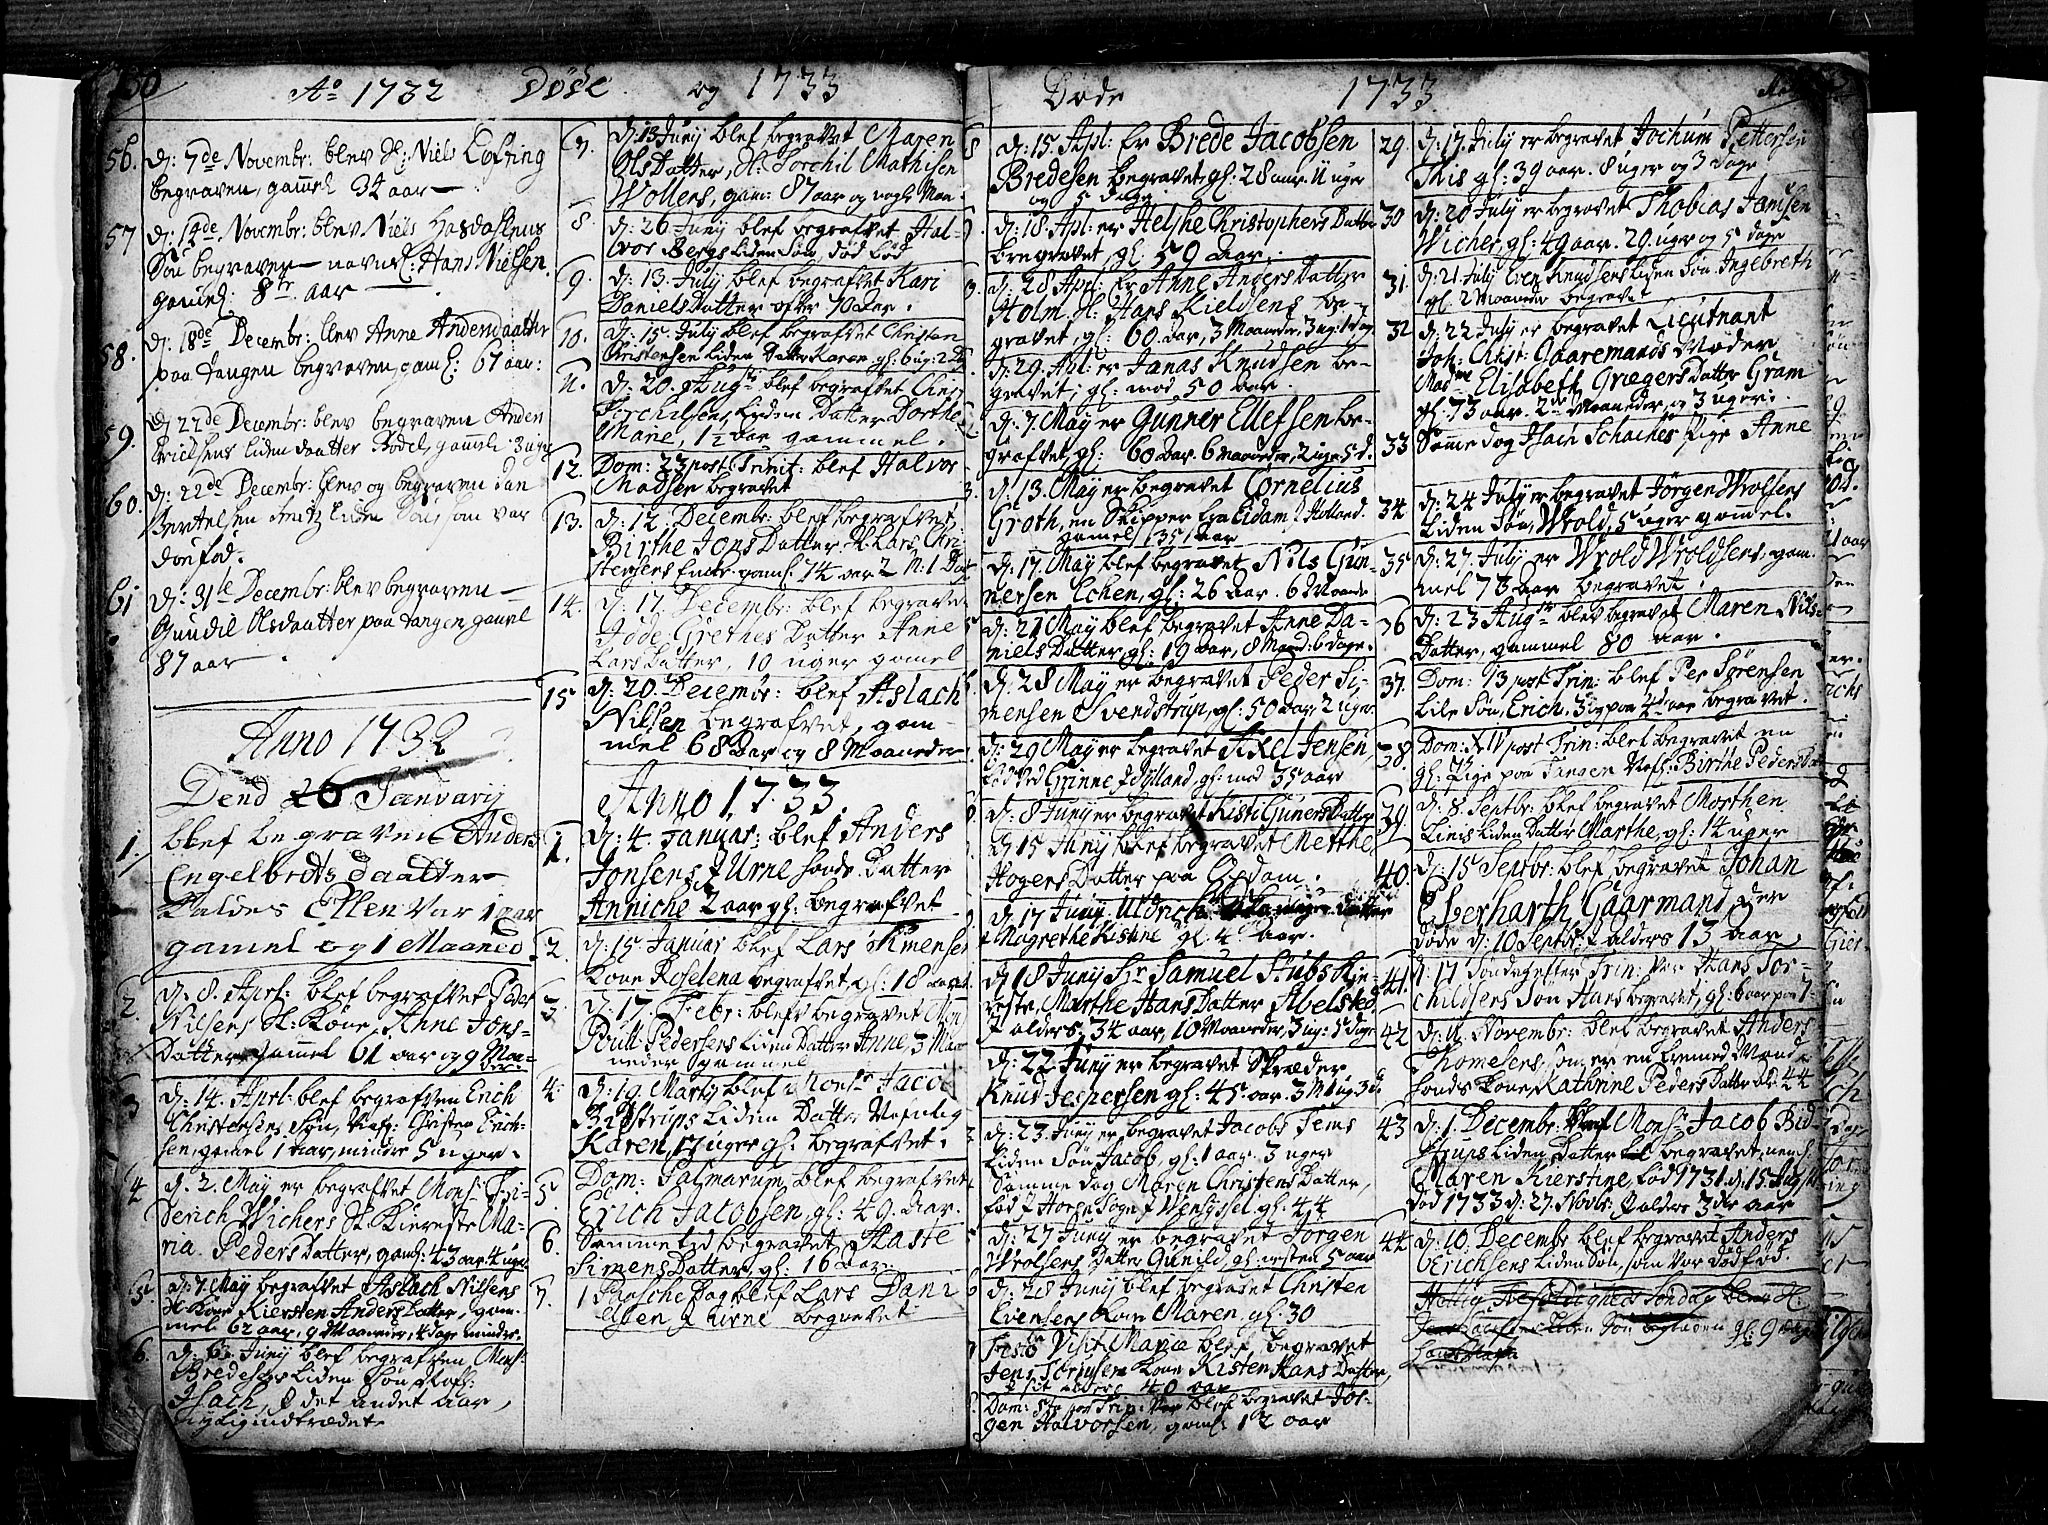 Ao 1732 Døde og 1733
56. d: 7de Novembr: blev Sl: Niels
begraven, gamel 34 aar
57 d: 14de Novembr: blev Niels
Søn begraven navnl: Hans Nielsen
gamel: 8tr aar
58. d: 18de Decembr: blev Anne Andersdaatter
paa Tangen begraven, gaml: 67 aar:
59. d 22de Decembr: blev begraven Anders
Erichsens liden daatter Bodel, gamel 3 uger
60. d: 22de Decembr: blev og begraven
Bertelsen liden Søn som var
dødfød.
61 d: 31te Decembr: blev begraven
Gundil Olsdaatter paa Tangen, gamel
87 aar
Anno 1732
Dend 26 Januarij
1. blef begraven Anders
Engelbrets daatter
Kaldes Ellen var 1 aar
gamel og 1 Maaned
2. d: 8. Aprl: blef begrafvet Peder
Nilsens Sl: Kone, Anne Jons-
Datter gammel 61 aar og 9 Maa-
der
3 d: 14. Aprl: blef begrafven Erich
Christensens Søn, Nafl: Christen Erich-
sen, gamel 1 aar, mindre 5 uger.
4 d. 2. Maÿ er begrafvet Mons: Fri-
derich Wichers Sl. Kiereste Ma-
ria Peders Datter, gaml: 43 aar 4 uger
5. d: 7. Maÿ begrafvet Aslach Nilsens
Sl. Kone Kiersten Anders Datter, gam-
mel 62 aar, 9 Maaneder, 4 dage mindre.
6. d: 6. Junij blef begrafven Mons:
Bredesens liden Søn Nafl:
Isach, i det andet aar,
nylig indtrædet
7. d: 13 Junij blef begravet Maren
Ols Datter, Sl: Torchil Mathisen
Wollers, gam: 87 aar og nogle Maa-
8. d: 26 Junij blef begrafvet Hal-
vor Bergs liden Søn, død fød
9. d: 13. Julij blef begrafvet Kari
Daniels Datter ofver 70 Aar.
10. d: 15. Julij blef begrafvet Christen
Christensen liden Datter Karen gl: 6 ug: 2 d
11. d: 20. Augsti blef begrafvet Chris
Torchilsens liden Datter Dorthe
Marie, 1½ aar gammel.
12. Dom: 23 post Trinit: blef Halvor
Madsen begravet
13. d: 12. Decembr: blef begrafvet
Birthe Jons Datter Sl: Lars Chri-
stensens Enke gaml: 74 aar 2 M: 1 Dag
14. d: 17. Decembr: blef begravet
Jøde Grethes Datter Anne
Lars Datter, 10 uger gamel
15 d: 20. Decembr: blef Aslach
Nilsen begrafvet, gam-
mel 68 Aar og 8 Maaneder
Anno 1733.
1. d: 4. Januar: blef Anders
Jonsens i Urne Datter
Anniche 2 aar gl: begrafvet
2. d: 15. Januar blef Lars Simensens
Kone Roselena begrafvet, gl: 18 aar
3. d: 17. Febr: blefv begravet
Poul Pedersens liden Datter Anne, 3 Maa-
neder gammel
4. d: 19. Martij blef Monsr Jacob
Bidstrups liden Datter Nafnlig
Karen, 17 uger gl: begrafvet.
5. Dom: Palmarum blef begrafvet
Erich Jacobsen, gl: 49. Aar.
6. Samme tid begravet Aaste
Simens Datter, gl: 16 Aar
7. 1 Paasche Dag blef Lars Dani
elsen i Urne begravet
Døde 1733
8 d: 15. Apl: Er Brede Jacobsen
Bredesen begravet, gl: 28 aar. 11 uger
og 5 dage
d: 18. Apl: er Helthe Christophers Datter
begravet gl: 59 Aar.
d: 28 Apl: Er Anne Anders Datter
Holm. Sl: Hans Kieldsens be-
gravet, gl: 60 Aar, 3 Maaneder, 3 ug: 1 dag
d: 29. Apl: er Janas Knudsen be-
gravet, gl: mod 50 Aar.
d: 7 Maÿ er Gunner Ellefsen be-
grafvet, gl: 60 Aar. 6 Maaneder, 2 uger 5 d.
d: 13. Maÿ er begravet Cornelius
Groth, en Skipper fra Eidam i Holland.
gamel 35 aar
d: 17. Maÿ blef begravet Nils Gun-
nersen Echen, gl: 26 Aar. 6 Maande
d: 21 Maÿ blef begravet Anne Da-
niels Datter, gl: 19 Aar, 8 Maaned: 6 dage.
d: 28 Maÿ er begravet Peder Si-
mensen Svendstrup, gl: 50 Aar 2 uger
d: 29 Maÿ er begravet Axel Jensen,
fød ved Grinne i Jylland, gl: mod 35 aar
d: 8 Junij er begravet Kisti Guners Datter
d 15 Junij blef begravet Methe
Hogens Datter paa
d: 17 Junij Uldrich
Magrethe Kistine gl: 4 aar.
d 18 Junij Hr: Samuel Stubs Kie-
reste, Marthe Hans Datter Abelsted
i alders: 34 aar, 10 Maaneder, 3 ug: 5 dage
d: 22 Junij er begravet Skræder
Knud Jespersen gl: 45 aar. 3 M 1 ug 3 d
d: 23 Junij er begravet Jacobs Tems
liden Søn Jacob, gl: 1 aar. 3 uger
Samme dag Maren Christens Datter,
fød i Horne Sogn i Wensyssel gl: 44
d: 27 Junij er begravet Jorgen
Wrolsens Datter Gunild, gl: nesten 5 aar
d: 28 Junij blef begravet Christen
Evensens Kone Maren, gl: 30
Festo Visit: Mariæ blef begravet
Jens Kone Kisten Hans Datter,
i sit alders 40 aar
Dom: 5ta post Trin: blef begravet Jør-
gen Halvorsen, gaml: 12 aar
29. d: 17. Julij er begravet Jochum Pettersen
This gl: 39 aar. 8 uger og 3 dage
30 d: 20 Julij er begravet Thobias Jamsen
Wicher, gl: 49 aar. 29. uger og 5 dage
31. d: 21 Julij Even Knudsens liden Søn Ingebreth
gl. 2 Maaneder begravet
32 d: 22 Julij er begravet Lieutnant
Joh: Christ: Gaaremands Moder
Madme Elisabeth Griegers Datter Gram
gl: 73 aar. 2de Maaneder, og 3 uger.
33 Samme dag Isach Schaches Pige Anne
34 d: 24 Julij er begravet Jørgen Wrolsens
liden Søn, Wrold, 5 uger gammel.
35 d: 27. Julij er Wrold Wroldsen, gam-
mel 73 Aar begravet.
36 d: 23 Augsti blev begravet Maren Nils
Datter, gammel 80 aar.
37. Dom: 13 post Trin: blef Per Sørensen
lille Søn, Erich, 3 ug paa 4de aar begravet.
38. Dom: XIV post Trin: blef begravet en
gl: Pige paa Tangen Nafl: Birthe Peders Dat
39 d: 8. Septbr: blef begravet Morthen
Linis liden Datter Marthe, gl: 14 uger
40. d: 15 Septbr: blef begravet Johan
Eberharth Gaarmand, der
døde d: 10 Septbr: i alders 13 aar
41. d: 17 Søndag efter Trin: var Hans Tor-
childsens Søn Hans begravet, gl: 6 aar paa 7-
42 d: 11. Novembr: blef begravet Anders
Thomesens, som er en fremmed Mand
hands Kone Kathrine Peders Datter al: 44
43 d: 1 Decembr: blef Monsr Jacob Bid-
strups liden Datter begravet, neml:
Maren Kierstine, fød 1731. d: 15 Augsti
død 1733 d: 27. Novbr: i alders 3die aar
44 d: 10 Decembr blef begravet Anders
Erichsens liden Søn, som var dødfød.
Søndag
liden Søn begraven gl: 9